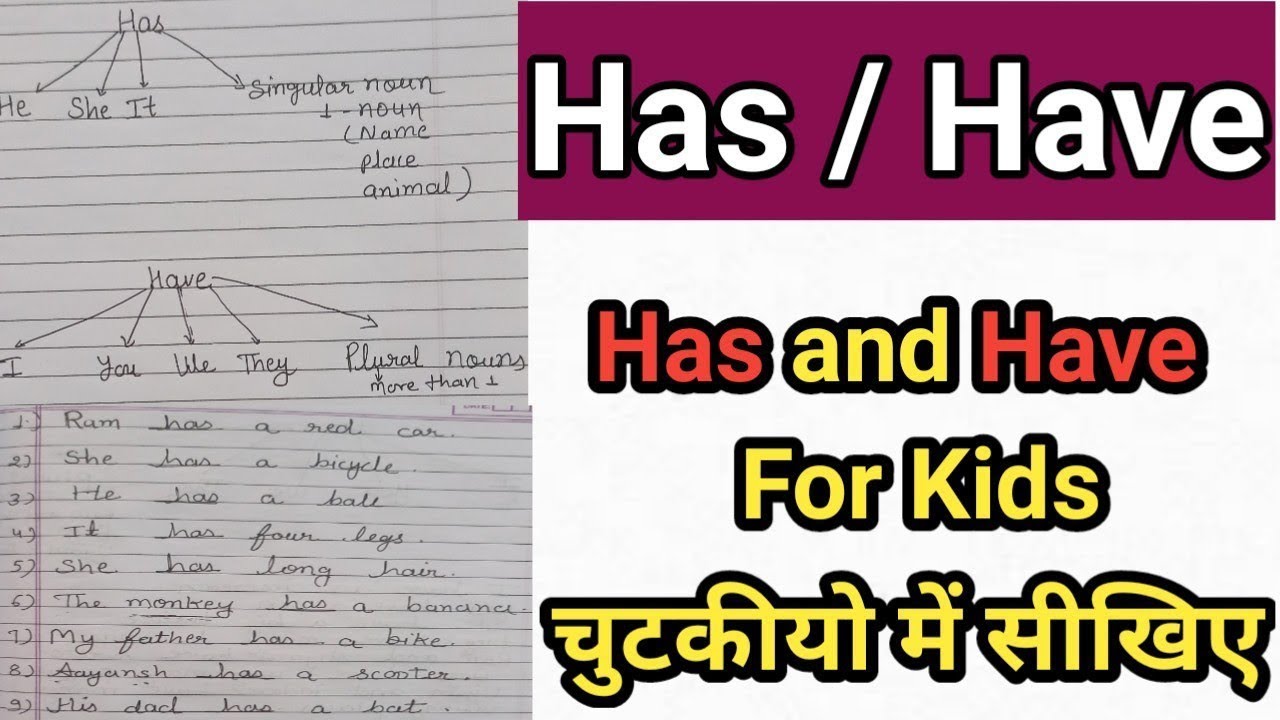 Has
He She It Singular noun
1 - noun
(Name
place
animal)
Have
I You We They Plural nouns
more than 1
1) Ram has a red car.
2) She has a bicycle.
3) He has a ball
4) It has four legs.
5) She has long hair.
6) The monkey has a banana.
7) My father has a bike.
8) Aayansh has a scooter.
9) His dad has a bat.
Has / Have
Has and Have
For Kids
चुटकीयो में सीखिए